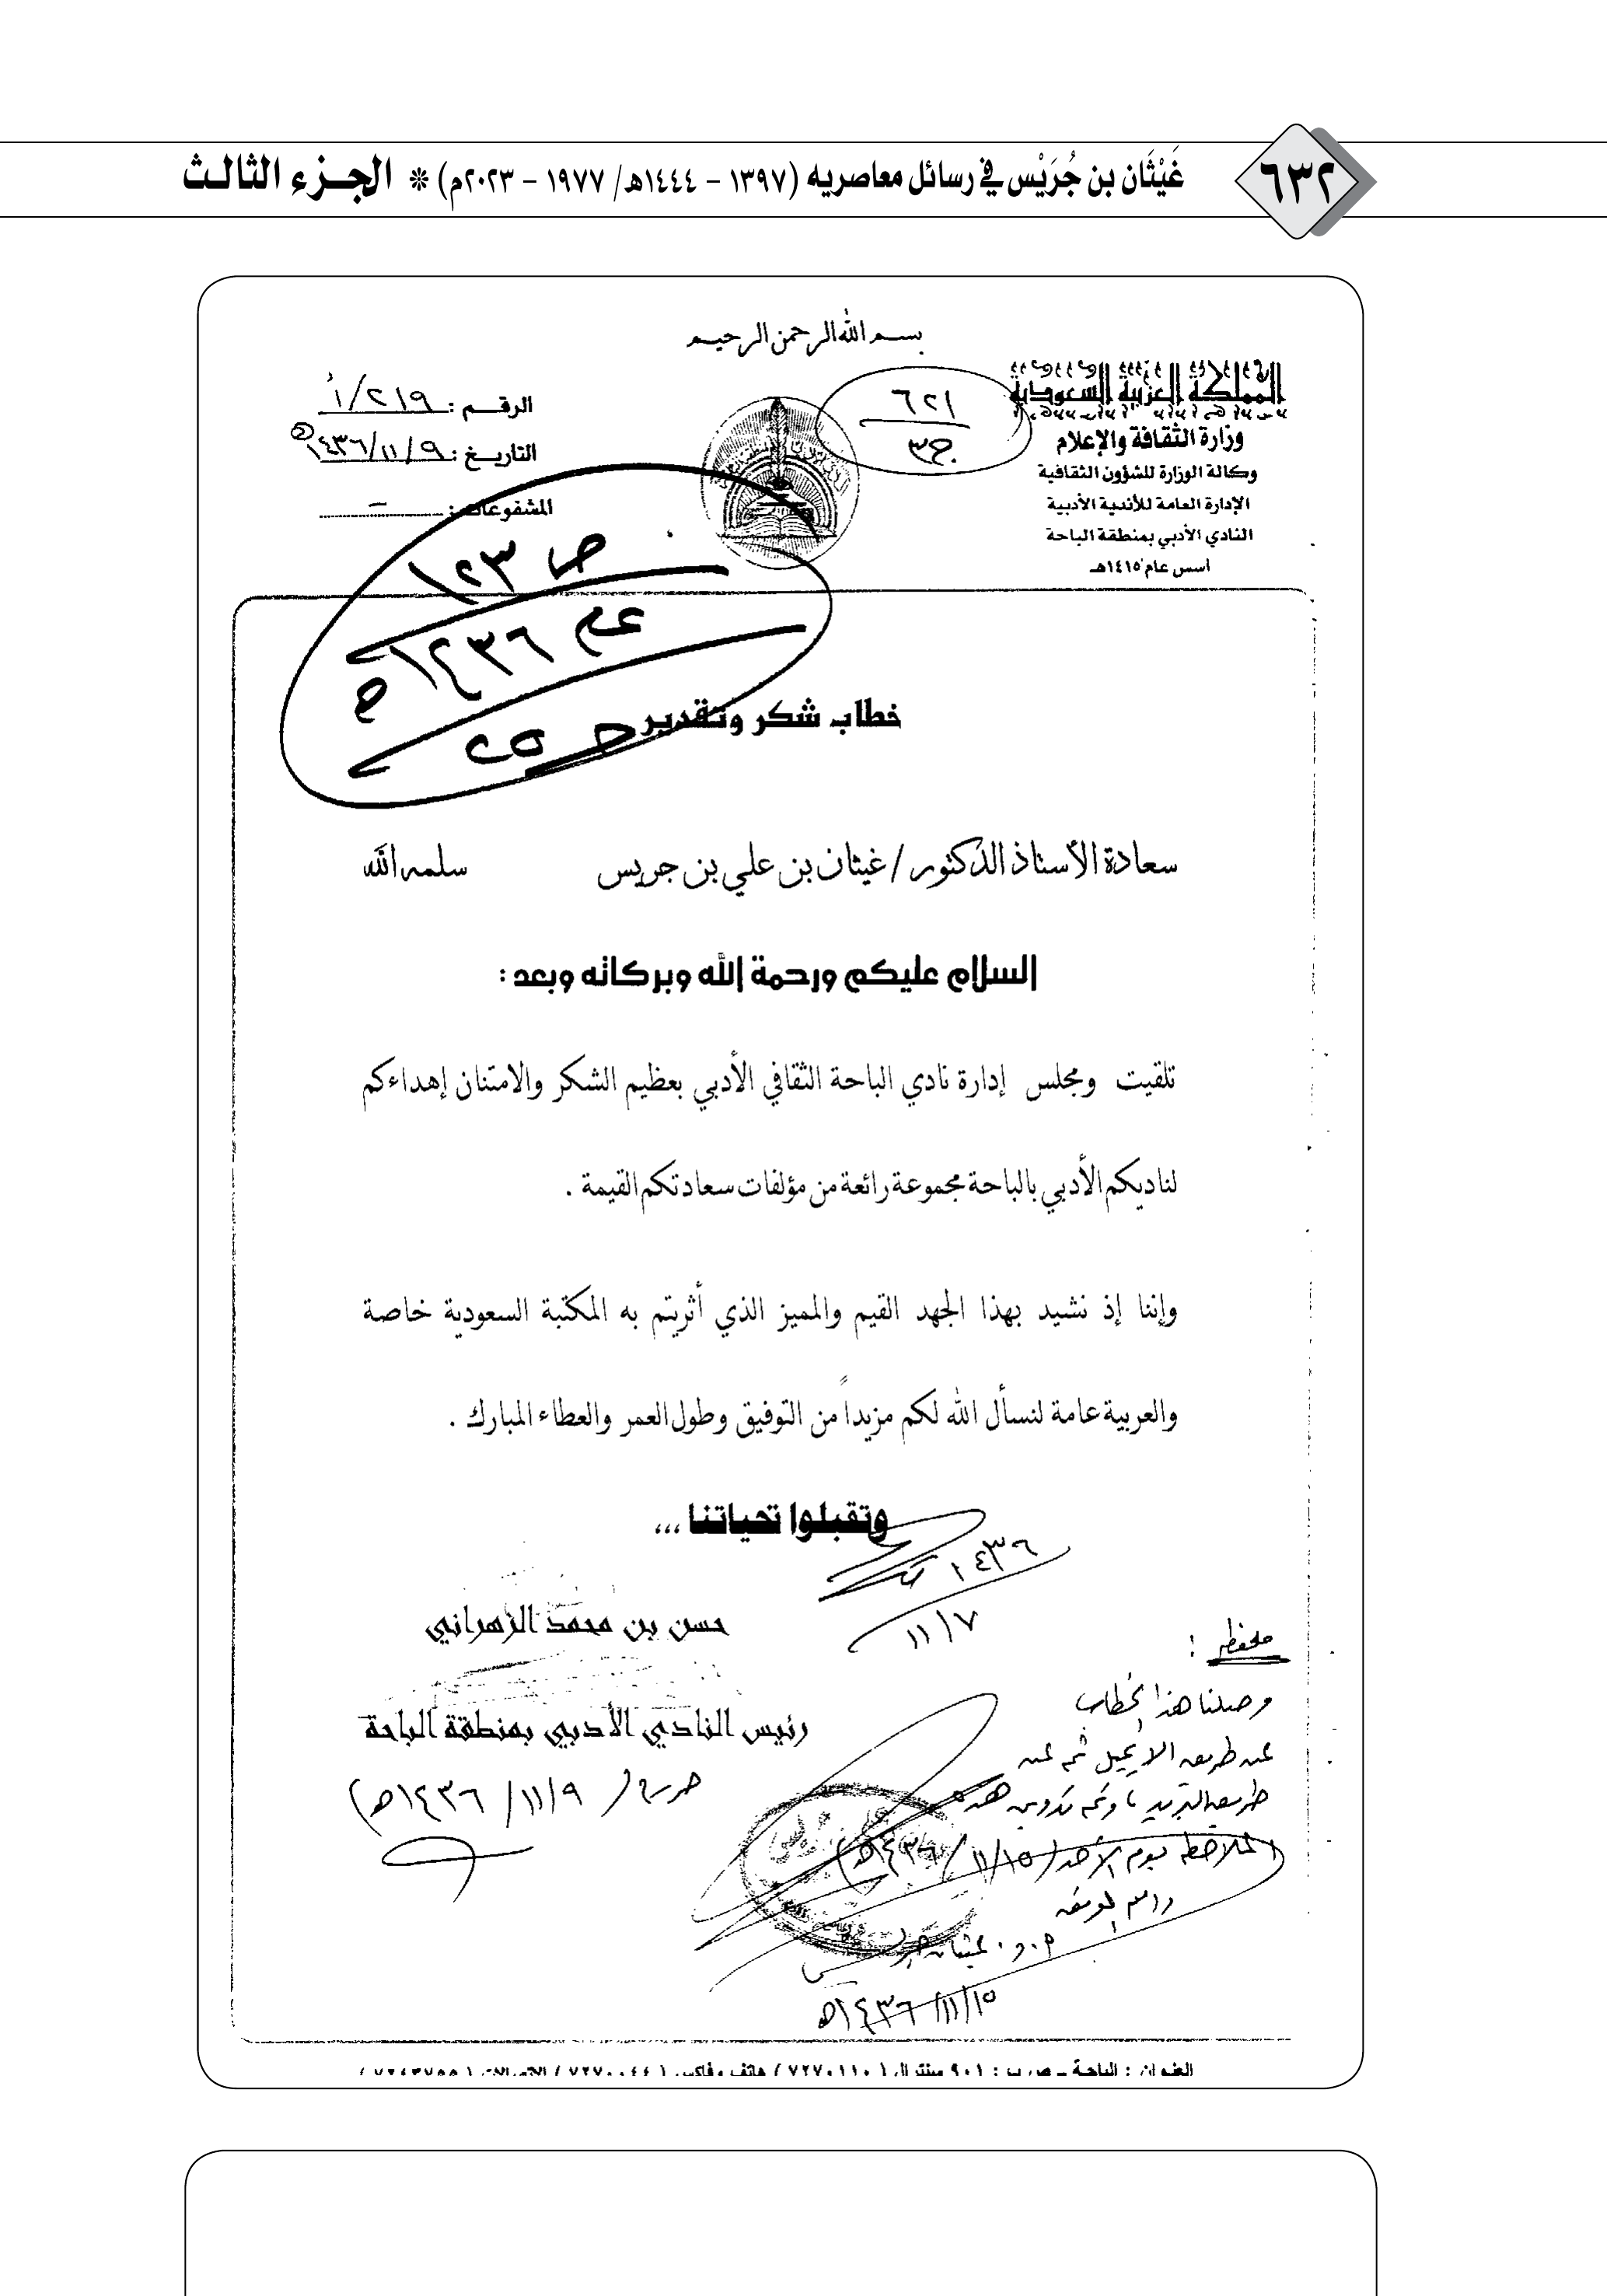 ٦٣٢
غَيْثَان بن جُرَيْس في رسائل معاصريه (١٣٩٧ - ١٤٤٤هـ/ ١٩٧٧ - ٢٠٢٣م) * الجزء الثالث
بسم الله الرحمن الرحيم
المملكة العربية السعودية
وزارة الثقافة والإعلام
وكالة الوزارة للشؤون الثقافية
الإدارة العامة للأندية الأدبية
النادي الأدبي بمنطقة الباحة
أسس عام ١٤١٥هـ
٦٢١
ج٣
الرقم : ٢١٩/أ
التاريخ : ١٤٣٦/١١/٩هـ
المشفوعات :
ص ١٢٣
عام ١٤٣٦هـ
خطاب شكر وتقدير
سعادة الأستاذ الدكتور / غيثان بن علي بن جريس سلمه الله
السلام عليكم ورحمة الله وبركاته وبعد :
تلقيت ومجلس إدارة نادي الباحة الثقافي الأدبي بعظيم الشكر والامتنان إهداءكم
لناديكم الأدبي بالباحة مجموعة رائعة من مؤلفات سعادتكم القيمة .
وإننا إذ نشيد بهذا الجهد القيم والمميز الذي أثريتم به المكتبة السعودية خاصة
والعربية عامة لنسأل الله لكم مزيداً من التوفيق وطول العمر والعطاء المبارك .
وتقبلوا تحياتنا ,,,
١٤٣٦
١١/٧
حسن بن محمد الزهراني
رئيس النادي الأدبي بمنطقة الباحة
١٤٣٦/١١/٩هـ)
ملحظة :
وصلنا هذا الخطاب
عن طريق الايميل ثم عن
طريق البريد ، وتم تدوين هذه
الملاحظة يوم الأحد (١٤٣٦/١١/١٥هـ)
والله الموفق
أ . د . غيثان جريس
١٤٣٦/١١/١٥هـ
العنوان : الباحة - ص ب : ٩٠١ سنترال ( ٧٢٧٠١١٠ ) هاتف وفاكس ( ٧٢٧٠٠٤٤ )